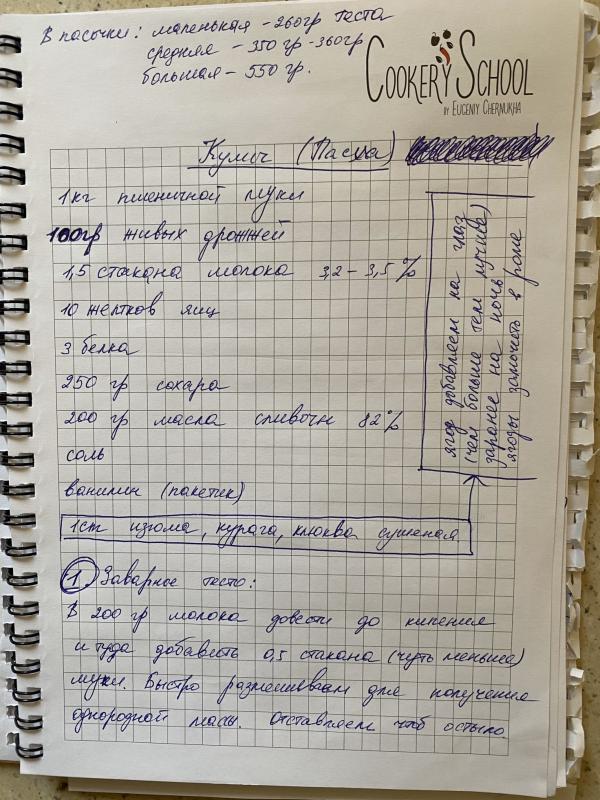 В пасочки: маленькая - 260гр теста
средняя - 350 гр - 360гр
большая - 550 гр.
COOKERY SCHOOL
BY EUGENIY CHERNUKHA
Кулич (Пасха)
1кг пшеничной муки
100гр живых дрожжей
1,5 стакана молока 3,2 - 3,5 %
10 желтков яиц
3 белка
250 гр сахара
200 гр масла сливочн 82%
соль
ванилин (пакетик)
1ст изюма, курага, клюква сушеная
ягод добавляем на глаз
(чем больше тем лучше)
заранее на ночь
ягоды замочить в роме
1 Заварное тесто:
В 200 гр молока довести до кипения
и туда добавить 0,5 стакана (чуть меньше)
муки. Быстро размешиваем для получения
однородной массы. Отставляем чтоб остыло